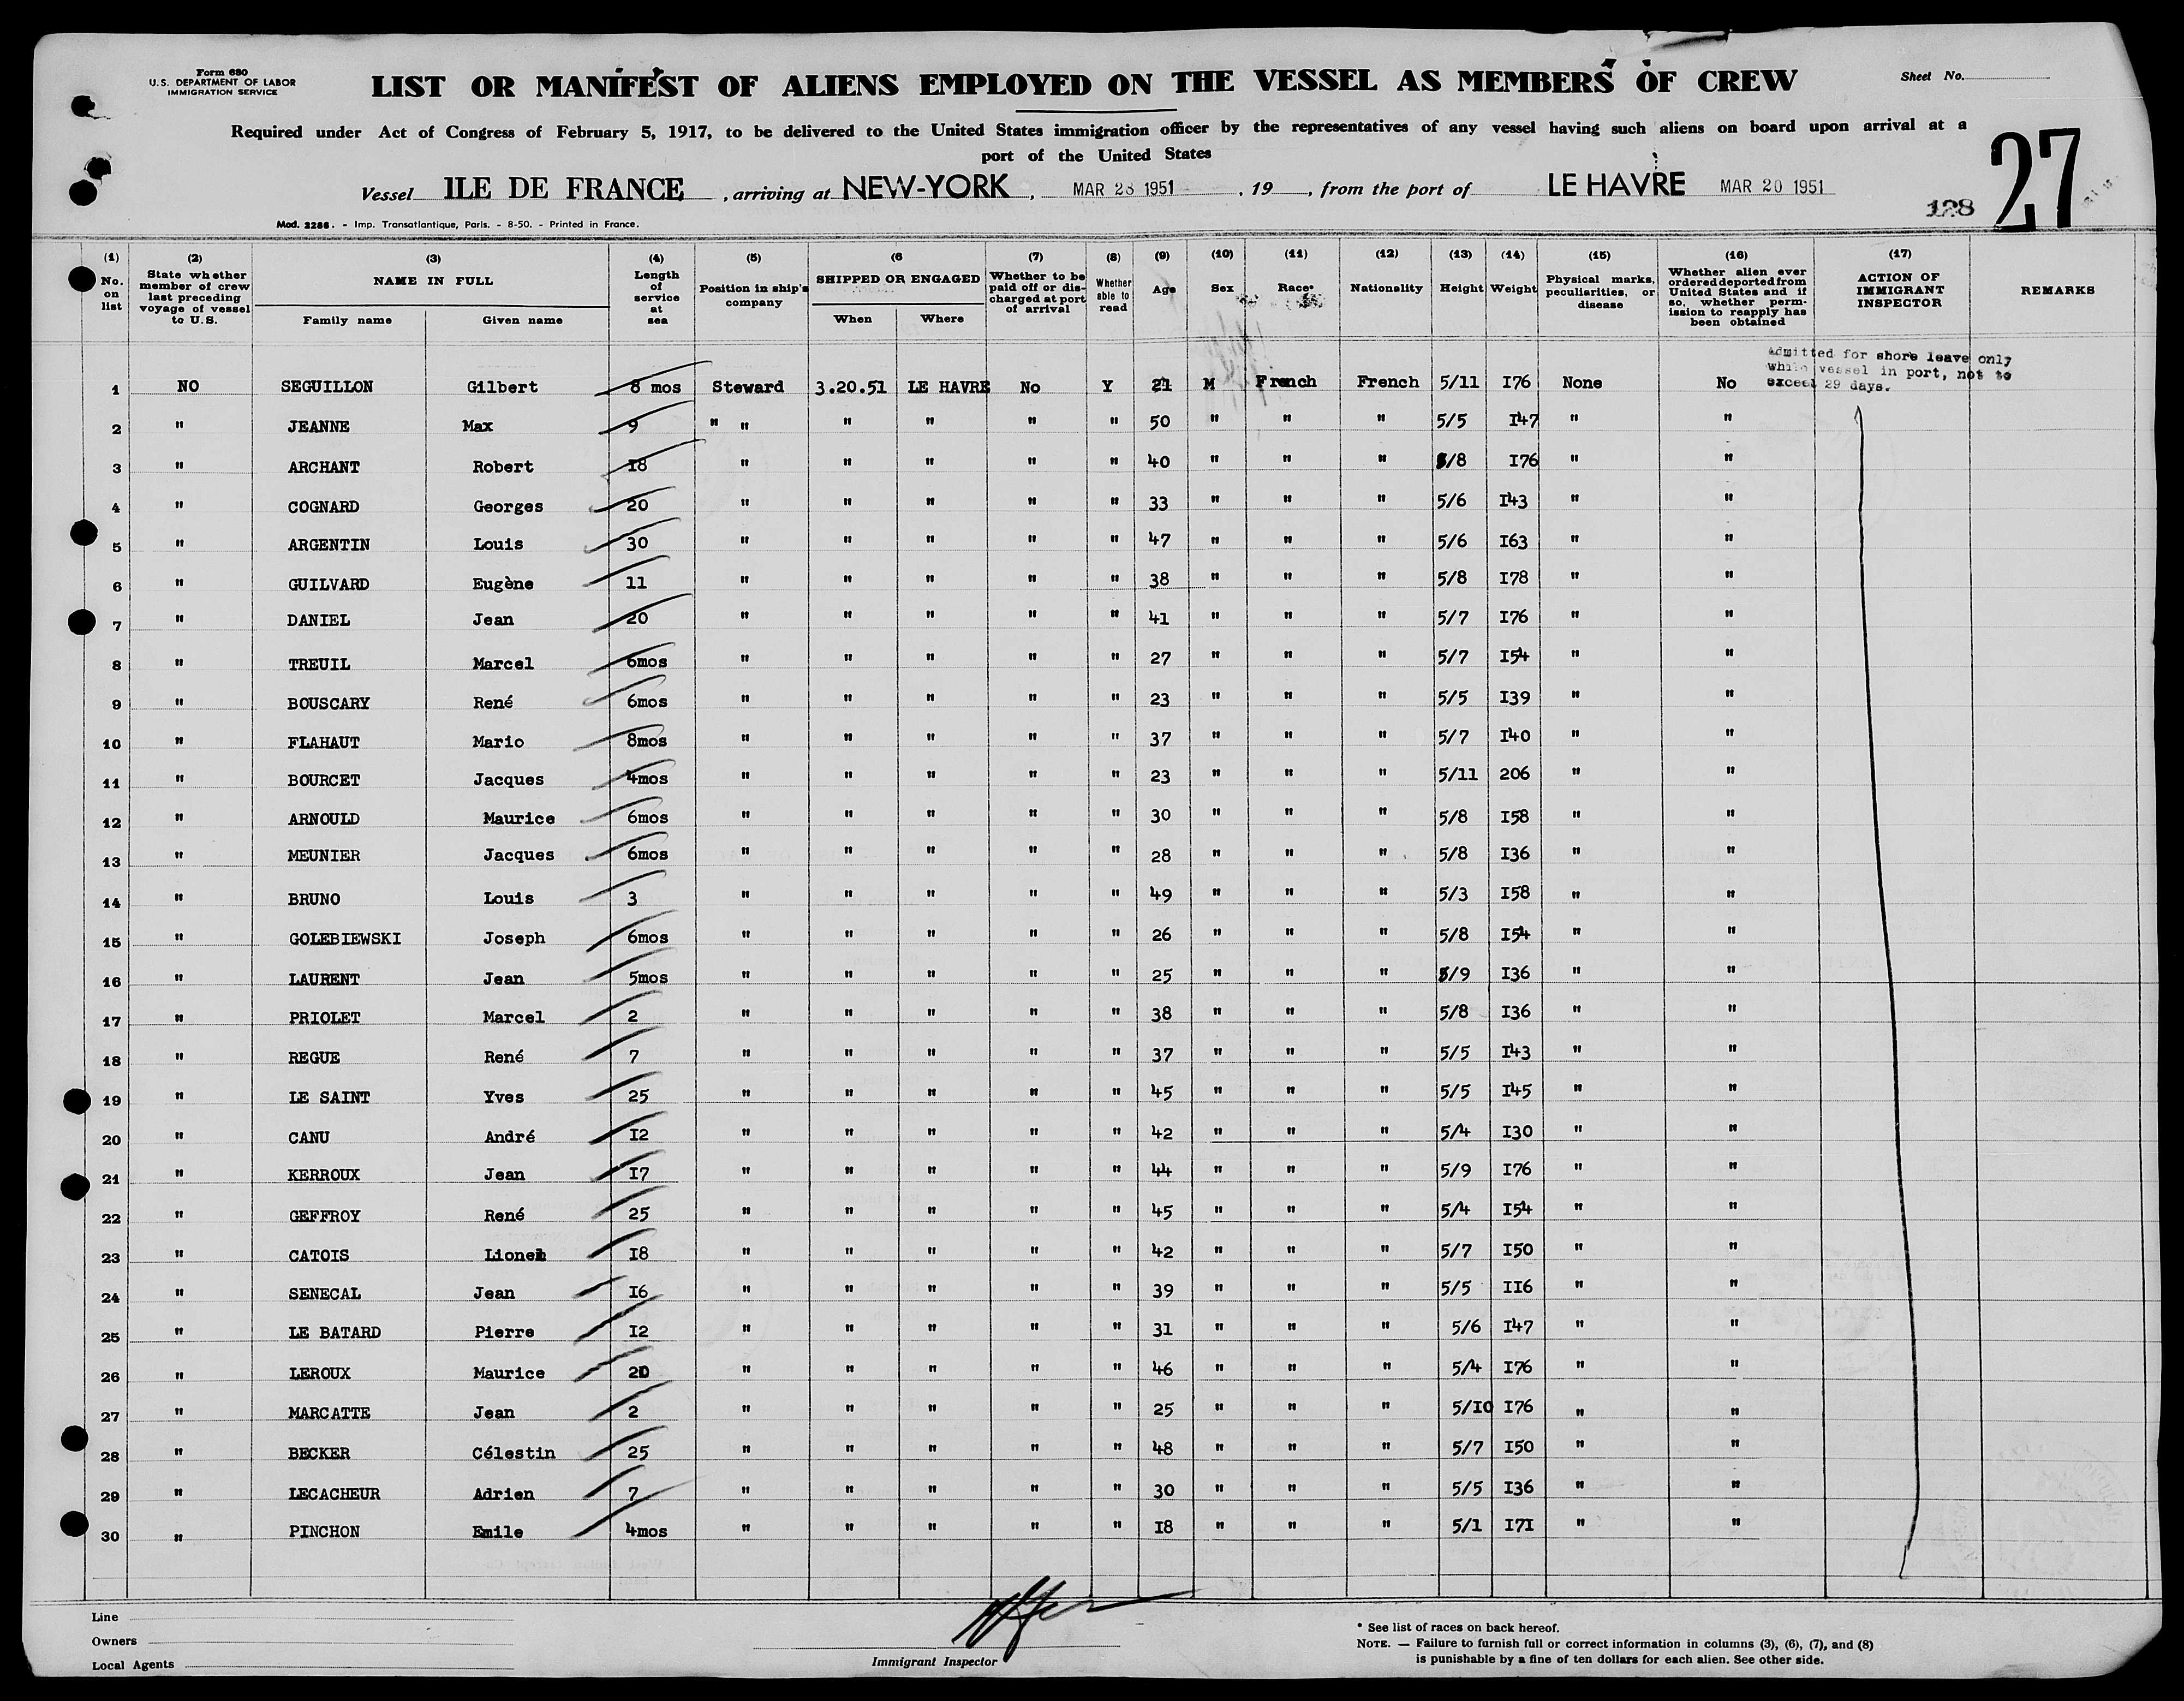 Form 680
U.S. DEPARTMENT OF LABOR
IMMIGRATION SERVICE
LIST OR MANIFEST OF ALIENS EMPLOYED ON THE VESSEL AS MEMBERS OF CREW
Sheet No.
Required under Act of Congress of February 5, 1917, to be delivered to the United States immigration officer by the representatives of any vessel having such aliens on board upon arrival at a
port of the United States
27
Vessel ILE DE FRANCE, arriving at NEW-YORK, MAR 28 1951, 19, from the port of LE HAVRE MAR 20 1951
128
Mod. 2286. - Imp. Transatlantique, Paris. - 8-50. - Printed in France.
(1) No. on list (2) State whether member of crew last preceding voyage of vessel to U.S. (3) NAME IN FULL Family name Given name (4) Length of service at sea (5) Position in ship's company (6 SHIPPED OR ENGAGED When Where (7) Whether to be paid off or discharged at port of arrival (8) Whether able to read (9) Age (10) Sex (11) Race* (12) Nationality (13) Height (14) Weight (15) Physical marks, peculiarities, or disease (16) Whether alien ever ordered deported from United States and if so, whether permission to reapply has been obtained (17) ACTION OF IMMIGRANT INSPECTOR REMARKS
Admitted for shore leave only
while vessel in port, not to
exceed 29 days.
1 NO SEGUILLON Gilbert 8 mos Steward 3.20.51 LE HAVRE No Y 21 M French French 5/11 176 None No
2 " JEANNE Max 9 " " " " " " 50 " " " 5/5 147 " "
3 " ARCHANT Robert 18 " " " " " 40 " " " 5/8 176 " "
4 " COGNARD Georges 20 " " " " " 33 " " " 5/6 143 " "
5 " ARGENTIN Louis 30 " " " " " 47 " " " 5/6 163 " "
6 " GUILVARD Eugène 11 " " " " " 38 " " " 5/8 178 " "
7 " DANIEL Jean 20 " " " " " 41 " " " 5/7 176 " "
8 " TREUIL Marcel 6mos " " " " " 27 " " " 5/7 154 " "
9 " BOUSCARY René 6mos " " " " " 23 " " " 5/5 139 " "
10 " FLAHAUT Mario 8mos " " " " " 37 " " " 5/7 140 " "
11 " BOURCET Jacques 4mos " " " " " 23 " " " 5/11 206 " "
12 " ARNOULD Maurice 6mos " " " " " 30 " " " 5/8 158 " "
13 " MEUNIER Jacques 6mos " " " " " 28 " " " 5/8 136 " "
14 " BRUNO Louis 3 " " " " " 49 " " " 5/3 158 " "
15 " GOLEBIEWSKI Joseph 6mos " " " " " 26 " " " 5/8 154 " "
16 " LAURENT Jean 5mos " " " " " 25 " " " 5/9 136 " "
17 " PRIOLET Marcel 2 " " " " " 38 " " " 5/8 136 " "
18 " REGUE René 7 " " " " " 37 " " " 5/5 143 " "
19 " LE SAINT Yves 25 " " " " " 45 " " " 5/5 145 " "
20 " CANU André 12 " " " " " 42 " " " 5/4 130 " "
21 " KERROUX Jean 17 " " " " " 44 " " " 5/9 176 " "
22 " GEFFROY René 25 " " " " " 45 " " " 5/4 154 " "
23 " CATOIS Lionel 18 " " " " " 42 " " " 5/7 150 " "
24 " SENECAL Jean 16 " " " " " 39 " " " 5/5 116 " "
25 " LE BATARD Pierre 12 " " " " " 31 " " " 5/6 147 " "
26 " LEROUX Maurice 20 " " " " " 46 " " " 5/4 176 " "
27 " MARCATTE Jean 2 " " " " " 25 " " " 5/10 176 " "
28 " BECKER Célestin 25 " " " " " 48 " " " 5/7 150 " "
29 " LECACHEUR Adrien 7 " " " " " 30 " " " 5/5 136 " "
30 " PINCHON Emile 4mos " " " " " 18 " " " 5/1 171 " "
Line
Owners
Local Agents
Immigrant Inspector
* See list of races on back hereof.
NOTE. — Failure to furnish full or correct information in columns (3), (6), (7), and (8)
is punishable by a fine of ten dollars for each alien. See other side.